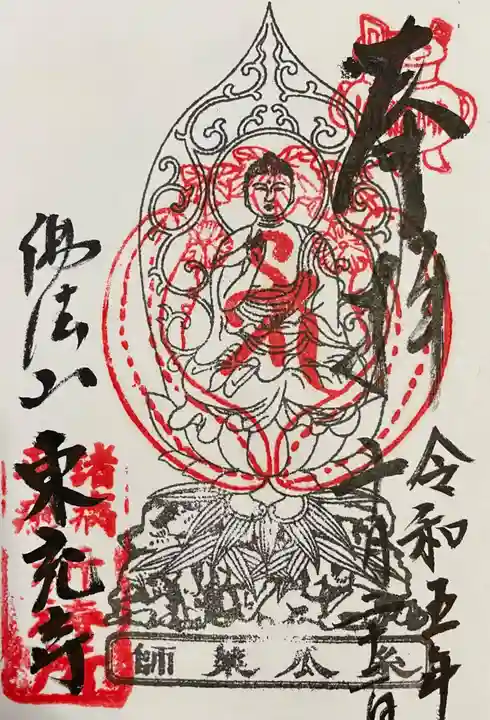 奉拝
令和五年
糸瓜薬師
佛法山
東充寺